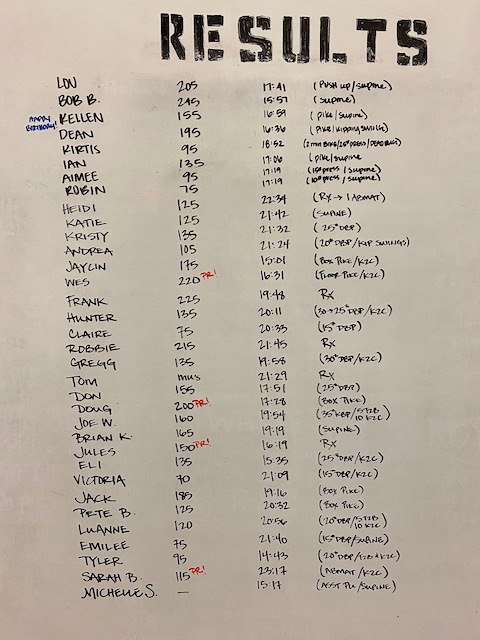 RESULTS
LOU 205 17:41 (PUSH UP/SUPINE)
BOB B. 245 15:57 (SUPINE)
HAPPY BIRTHDAY! KELLEN 155 16:59 (PIKE/SUPINE)
DEAN 195 16:36 (PIKE/KIPPING SWINGS)
KIRTIS 95 18:52
IAN 135 17:06 (PIKE/SUPINE
AIMEE 95 17:19 (15# PRESS/SUPINE)
ROBIN 75 17:19 (10# PRESS/SUPINE)
HEIDI 125 22:34 (RX → 1 ABMAT)
KATIE 125 21:42 (SUPINE)
KRISTY 135 21:32 (25# DBP)
ANDREA 105 21:24 (20# DBP/KIP SWINGS)
JAYCIN 175 15:01 (BOX PIKE/K2C)
WES 220 PR! 16:31 (FLOOR PIKE/K2C)
FRANK 225 19:48 RX
HUNTER 135 20:11 (30→25# DBP/K2C)
CLAIRE 75 20:33 (15# DBP)
ROBBIE 215 21:45 RX
GREGG 135 19:58 (30# DBP/K2C)
TOM 21:29 RX
DON 155 17:51 (25# DBP)
DOUG 200 PR! 17:28 (BOX PIKE)
JOE W. 160 19:54 (35# KBP/5 T2B 10 K2C)
BRIAN K. 165 19:19 (SUPINE)
JULES 150 PR! 16:19 RX
ELI 135 15:35 (25# DBP/K2C)
VICTORIA 70 21:09 (15# DBP/K2C)
JACK 185 19:16 (BOX PIKE)
PETE B. 125 20:32 (BOX PIKE)
LUANNE 120 20:56 (20# DBP/5 T2B 10 K2C)
EMILEE 75 21:40 (15# DBP/SUPINE)
TYLER 95 14:43 (20# DBP/T2B+K2C)
SARAH B. 115 PR! 23:17 (ABMAT/K2C)
MICHELLE S. — 15:17 (ASST PU/SUPINE)